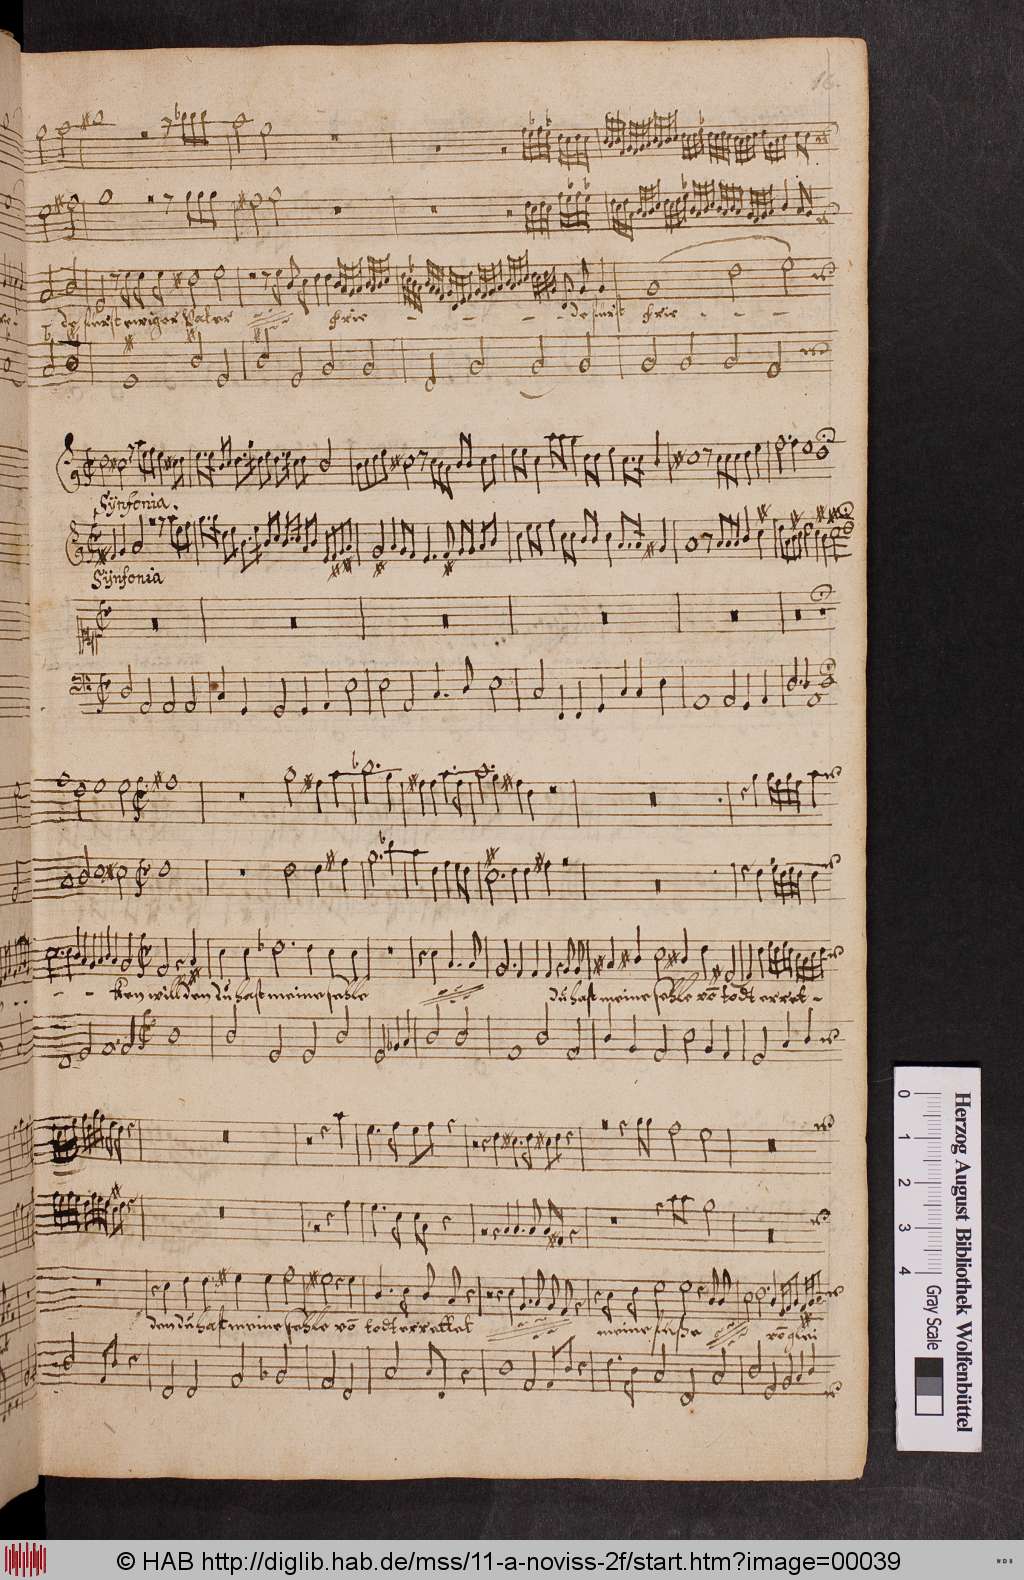 16.
de fürst ewiger Vater
frie - - - de fürst frie - - -
Synfonia.
Synfonia
- - ken will den du hast meine sehle
du hast meine sehle võ todt erret -
den du hast meine sehle võ todt errettet
meine füsse
võ glei
Herzog August Bibliothek Wolfenbüttel
0 1 2 3 4
Gray Scale
© HAB http://diglib.hab.de/mss/11-a-noviss-2f/start.htm?image=00039